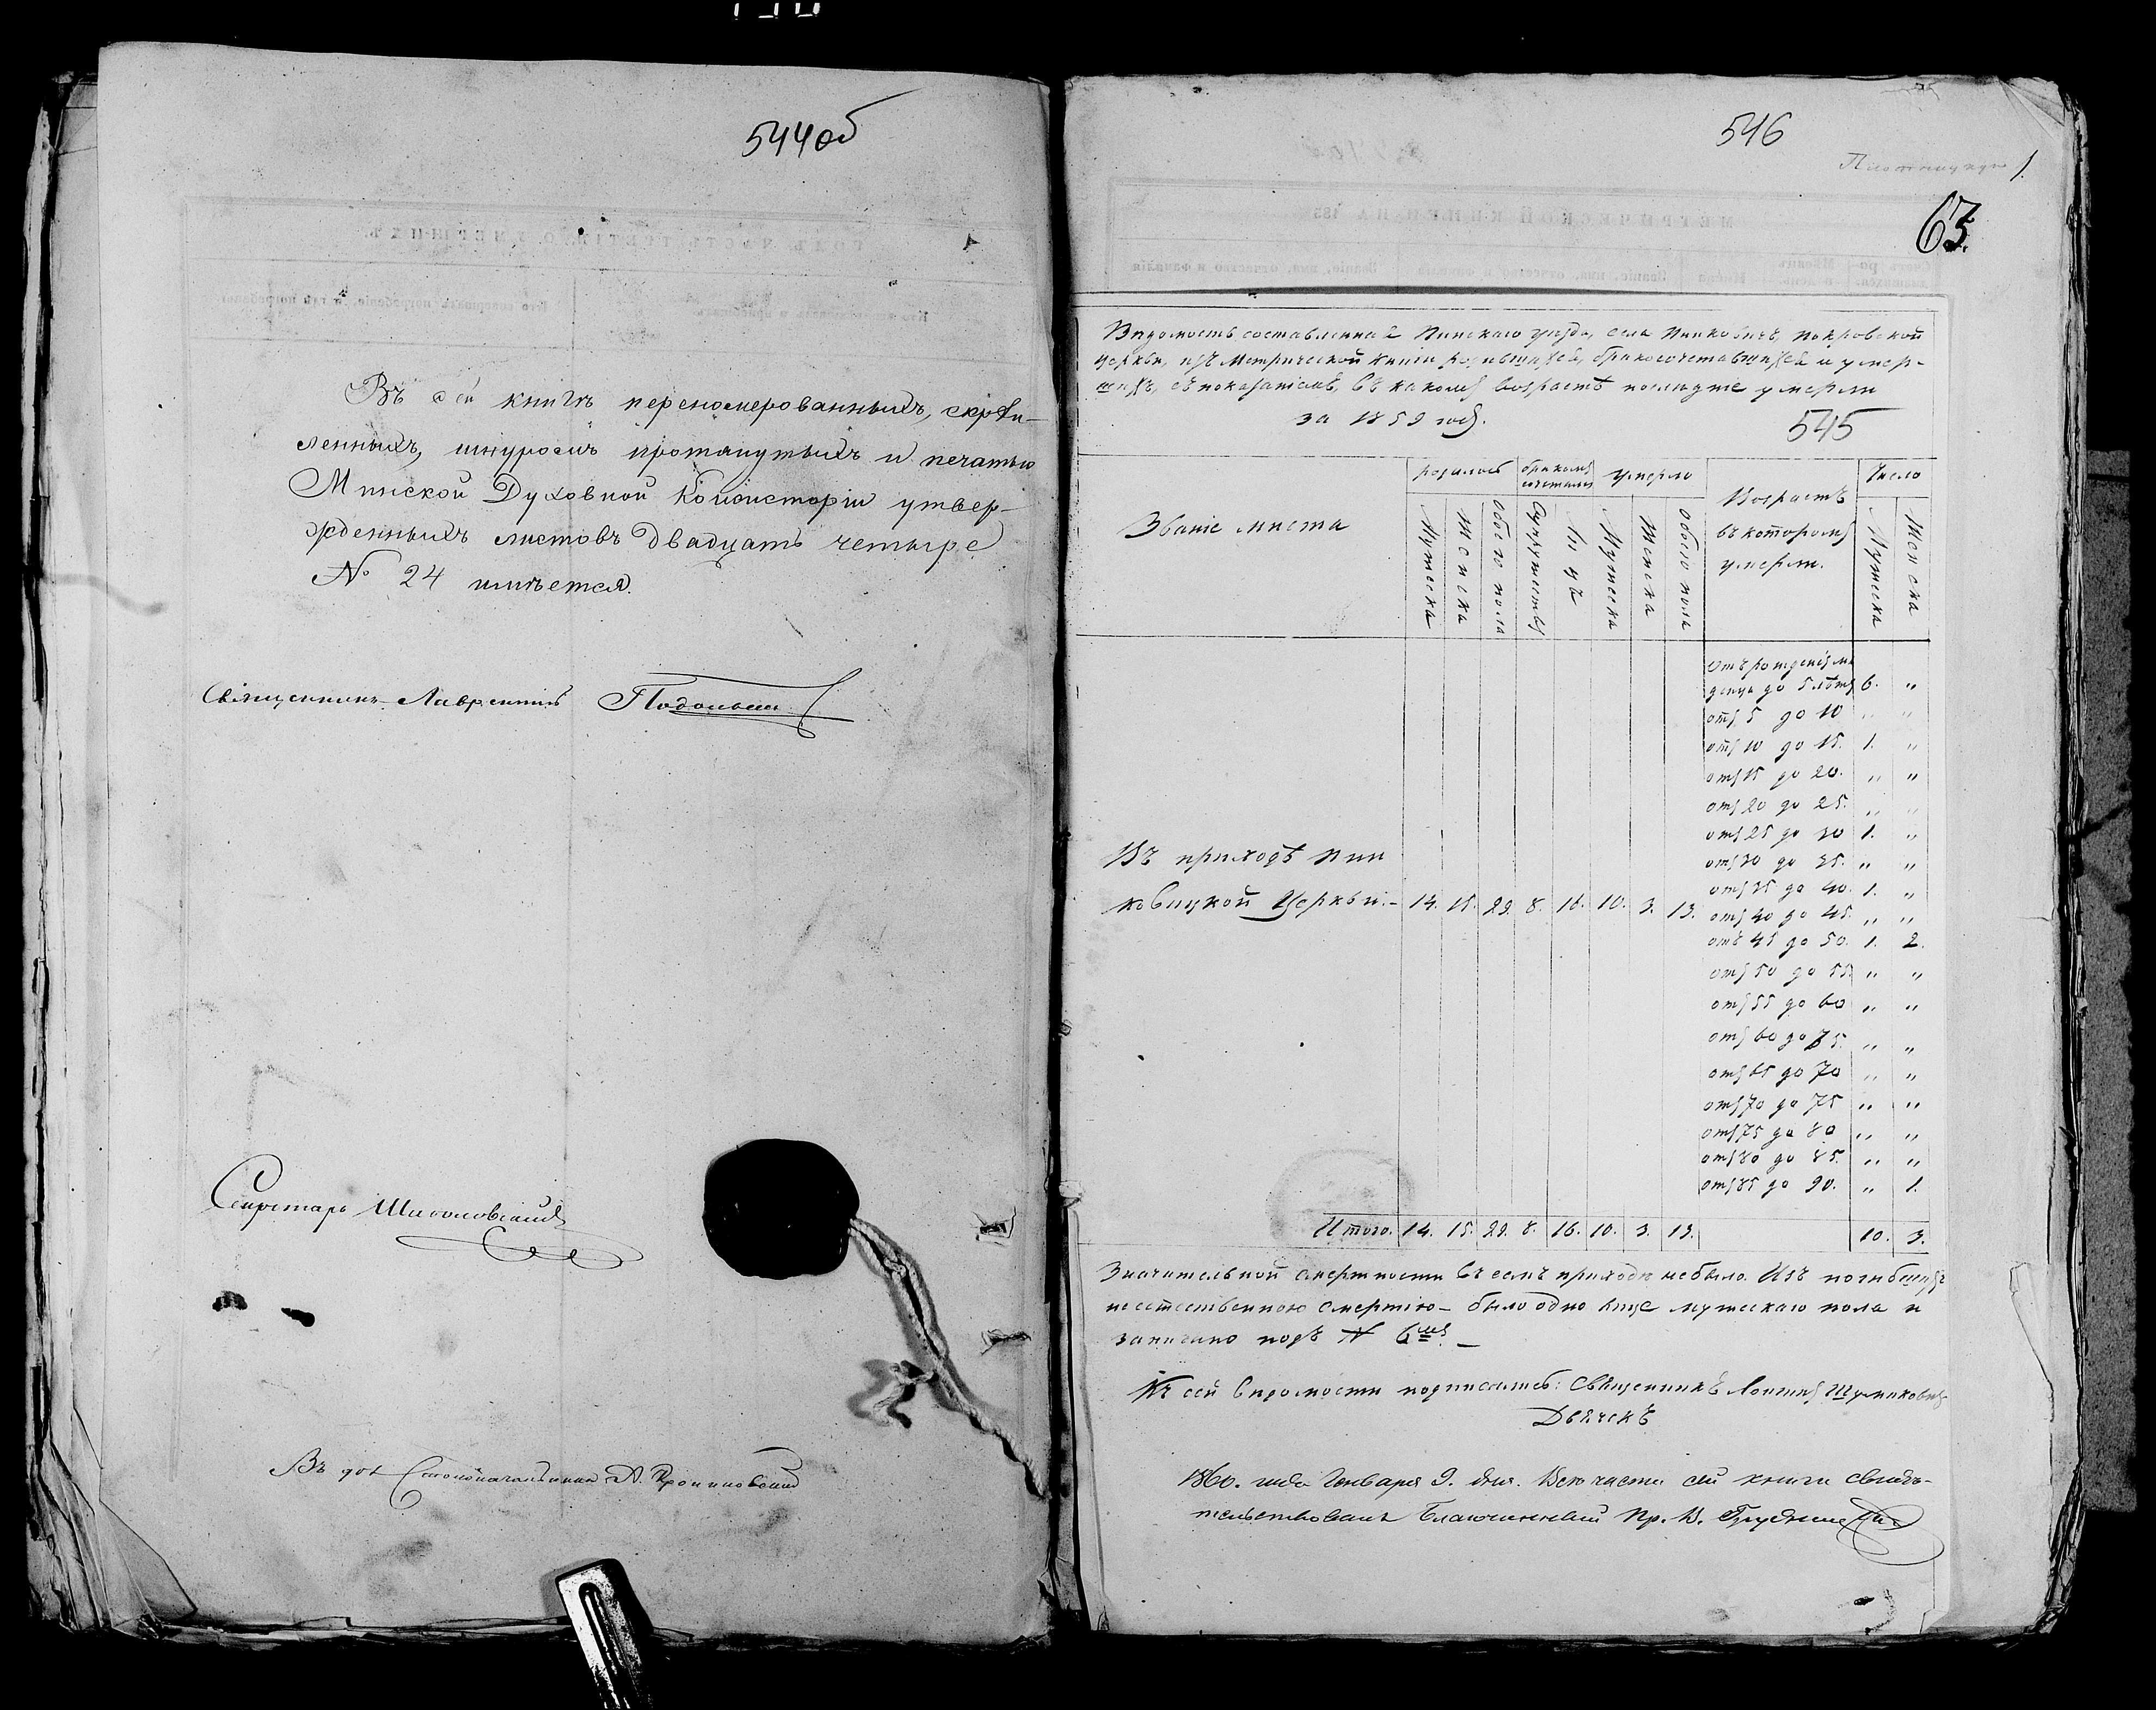 544об
Въ сей книгѣ перенумерованныхъ, скрѣп-
ленныхъ, шнуромъ протянутыхъ и печатью
Минской Духовной Консисторіи утвер-
жденныхъ листовъ двадцать четыре
№ 24 имѣется.
Священникъ Лаврентій
Секретарь
Въ дол. Столоначальника А.
546
1.
63.
Вѣдомость составленная Пинскаго уѣзда, села Пинковичъ, Покровской
церкви, изъ Метрической книги родившихся, бракосочетавшихся и умер-
шихъ, съ показаніемъ, въ какомъ возрастѣ послѣдніе умерли
за 1859 годъ.
545
Званіе мѣста
родилось
бракомъ сочеталось
умерло
Возрастъ
въ которомъ
умерли.
Число
Мужеска
Женска
Обоего пола
Супружествъ
Лицъ
Мужеска
Женска
Обоего пола
Мужеска
Женска
Отъ рожденія мла
денца до 5 лѣтъ 6. „
отъ 5 до 10 „ „
отъ 10 до 15. 1. „
отъ 15 до 20. „ „
отъ 20 до 25. „ „
отъ 25 до 30 1. „
отъ 30 до 35. „ „
отъ 35 до 40. 1. „
Въ приходѣ Пин
ковицкой Церкви. – 14. 15. 29. 8. 16. 10. 3. 13.
отъ 40 до 45. „ „
отъ 45 до 50. 1. 2.
отъ 50 до 55. „ „
отъ 55 до 60 „ „
отъ 60 до 65. „ „
отъ 65 до 70 „ „
отъ 70 до 75 „ „
отъ 75 до 80 „ „
отъ 80 до 85. „ „
отъ 85 до 90. „ 1.
Итого. 14. 15. 29. 8. 16. 10. 3. 13. 10. 3.
Значительной смертности въ семъ приходѣ небыло. Изъ погибшихъ
неестественною смертію – было одно лице мужескаго пола и
записано подъ № 6мъ. –
Къ сей вѣдомости подписались: Священникъ
Дьячекъ
1860. года Генваря 9. дня. Всѣ части сей книги свидѣ-
тельствовалъ Благочинный Пр. В.